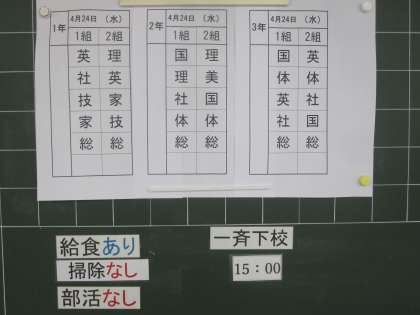 1年 4月24日 (水)
1組 2組
英 理
社 英
技 家
家 技
総 総
2年 4月24日 (水)
1組 2組
国 理
理 美
社 国
体 体
総 総
3年 4月24日 (水)
1組 2組
国 英
体 体
英 社
社 国
総 総
給食あり
掃除なし
部活なし
一斉下校
15:00